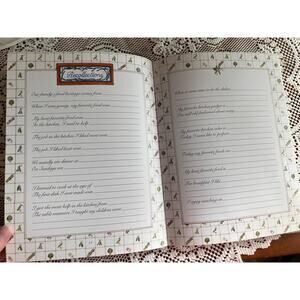 Recollections
Our family's food heritage comes from
When I was young, my favorite food was
My least favorite food was
In the kitchen, I used to help
The job in the kitchen I liked most was
The job I liked least was
We usually ate dinner at
On Sundays we
I learned to cook at the age of
The first dish I ever made was
I got the most help in the kitchen from
The table manners I taught my children were
When it came time to do the dishes
My favorite kitchen gadget is
My favorite kitchen color is
Today, I most like to prepare
Today my favorite foods are
My least favorite food is
For breakfast I like
I enjoy snacking on